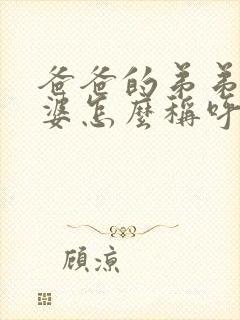 爸爸的弟弟
婆怎麼稱呼
顧涼